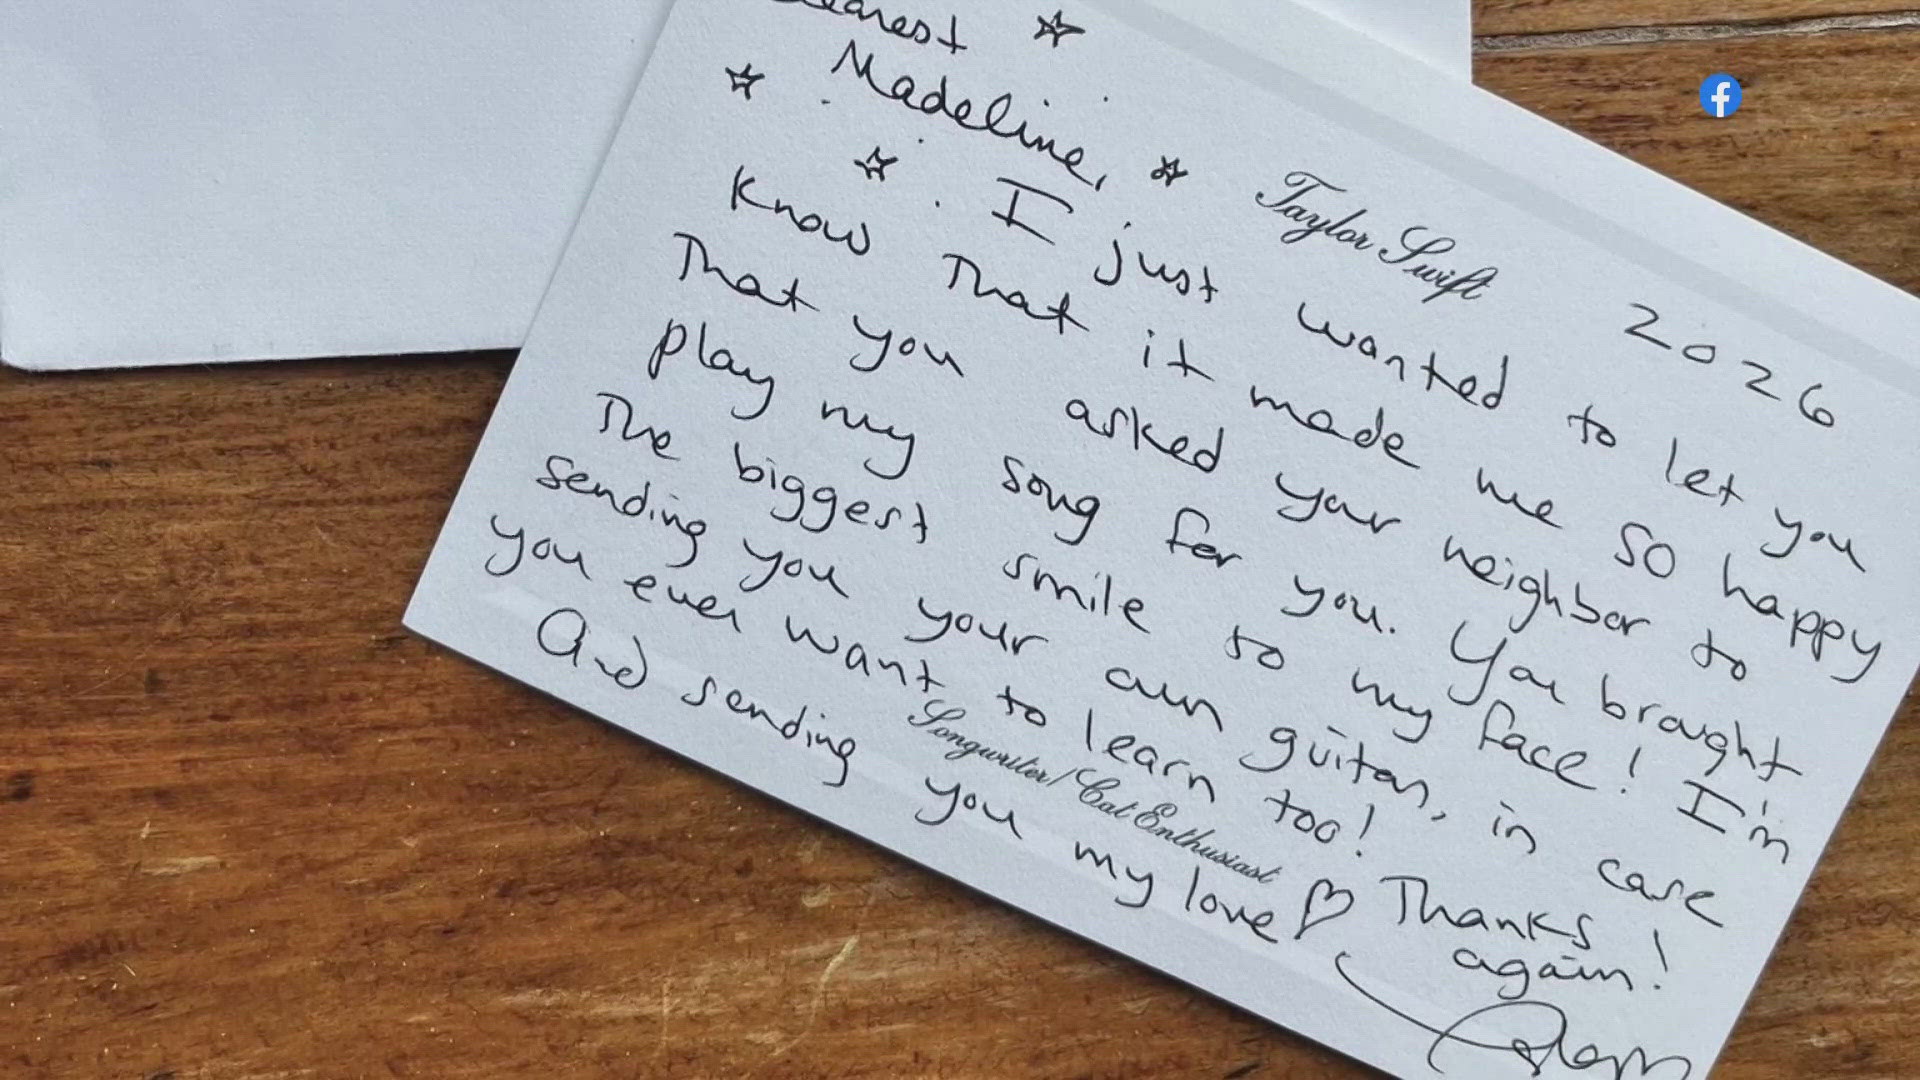 Dearest
Madeline,
Taylor Swift
2026
I just wanted to let you
Know That it made me so happy
That you asked your neighbor to
play my song for you. You brought
The biggest smile to my face! I'm
sending you your own guitar, in case
you ever want to learn too! Thanks
again!
And sending you my love ♡
Songwriter/Cat Enthusiast